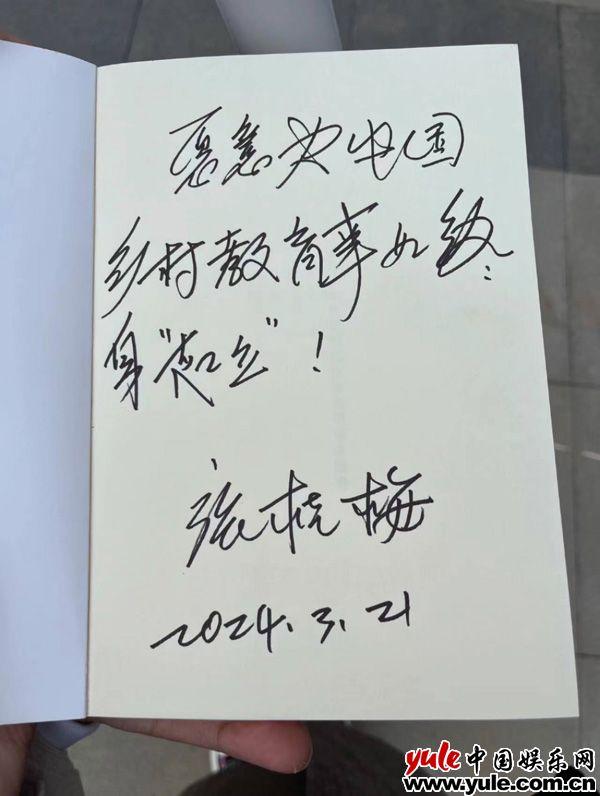 愿意为中国
乡村教育事业终
身"立"！
张桂梅
2024.3.21
yule中国娱乐网
www.yule.com.cn